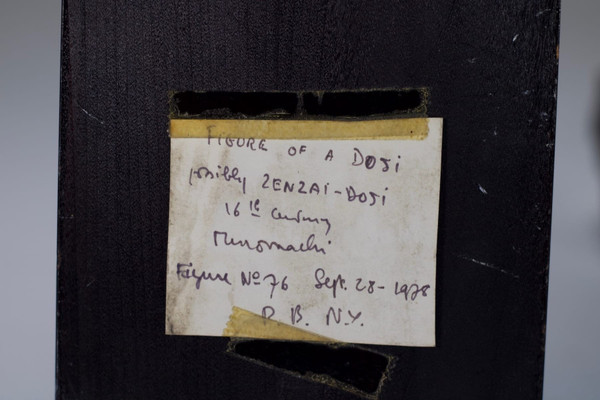 FIGURE OF A DOJI
possibly ZENZAI-DOJI
16th Century
Muromachi
Figure No 76 Sept. 28 - 1978
P. B. N.Y.